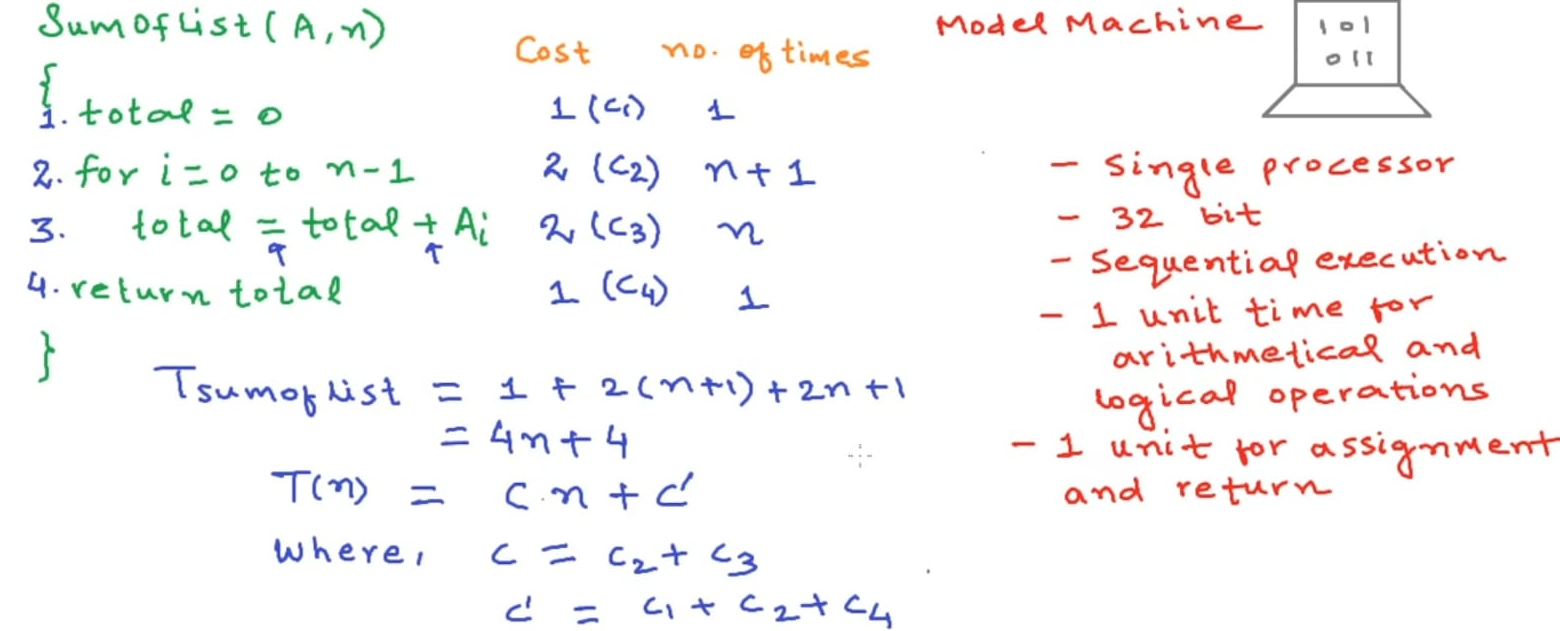 SumOfList(A,n)
{
Cost no. of times
1. total = 0 1 (C1) 1
2. for i=0 to n-1 2 (C2) n+1
3. total = total + Ai 2 (C3) n
4. return total 1 (C4) 1
}
Tsumoflist = 1 + 2(n+1) + 2n + 1
= 4n + 4
T(n) = C.n + C'
where, C = C2 + C3
C' = C1 + C2 + C4
Model Machine
101
011
- Single processor
- 32 bit
- Sequential execution
- 1 unit time for
arithmetical and
logical operations
- 1 unit for assignment
and return